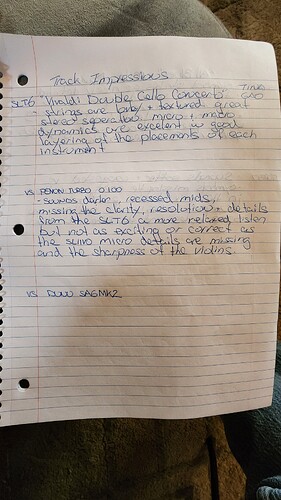 Track Impressions
SLT6 "Vivaldi Double Cello Concerto"
- strings are buby + textured great
stereo seperation, micro + macro
dynamics are excelent w good
layering of the placements of each
instrument
vs PENON TURBO 0.100
- sounds darker, recessed mids,
missing the clarity, resolution + details
from the SLT6 a more relaxed listen
but not as exciting or correct as
the micro details are missing
and the sharpness of the violins.
vs DUNU SA6MK2